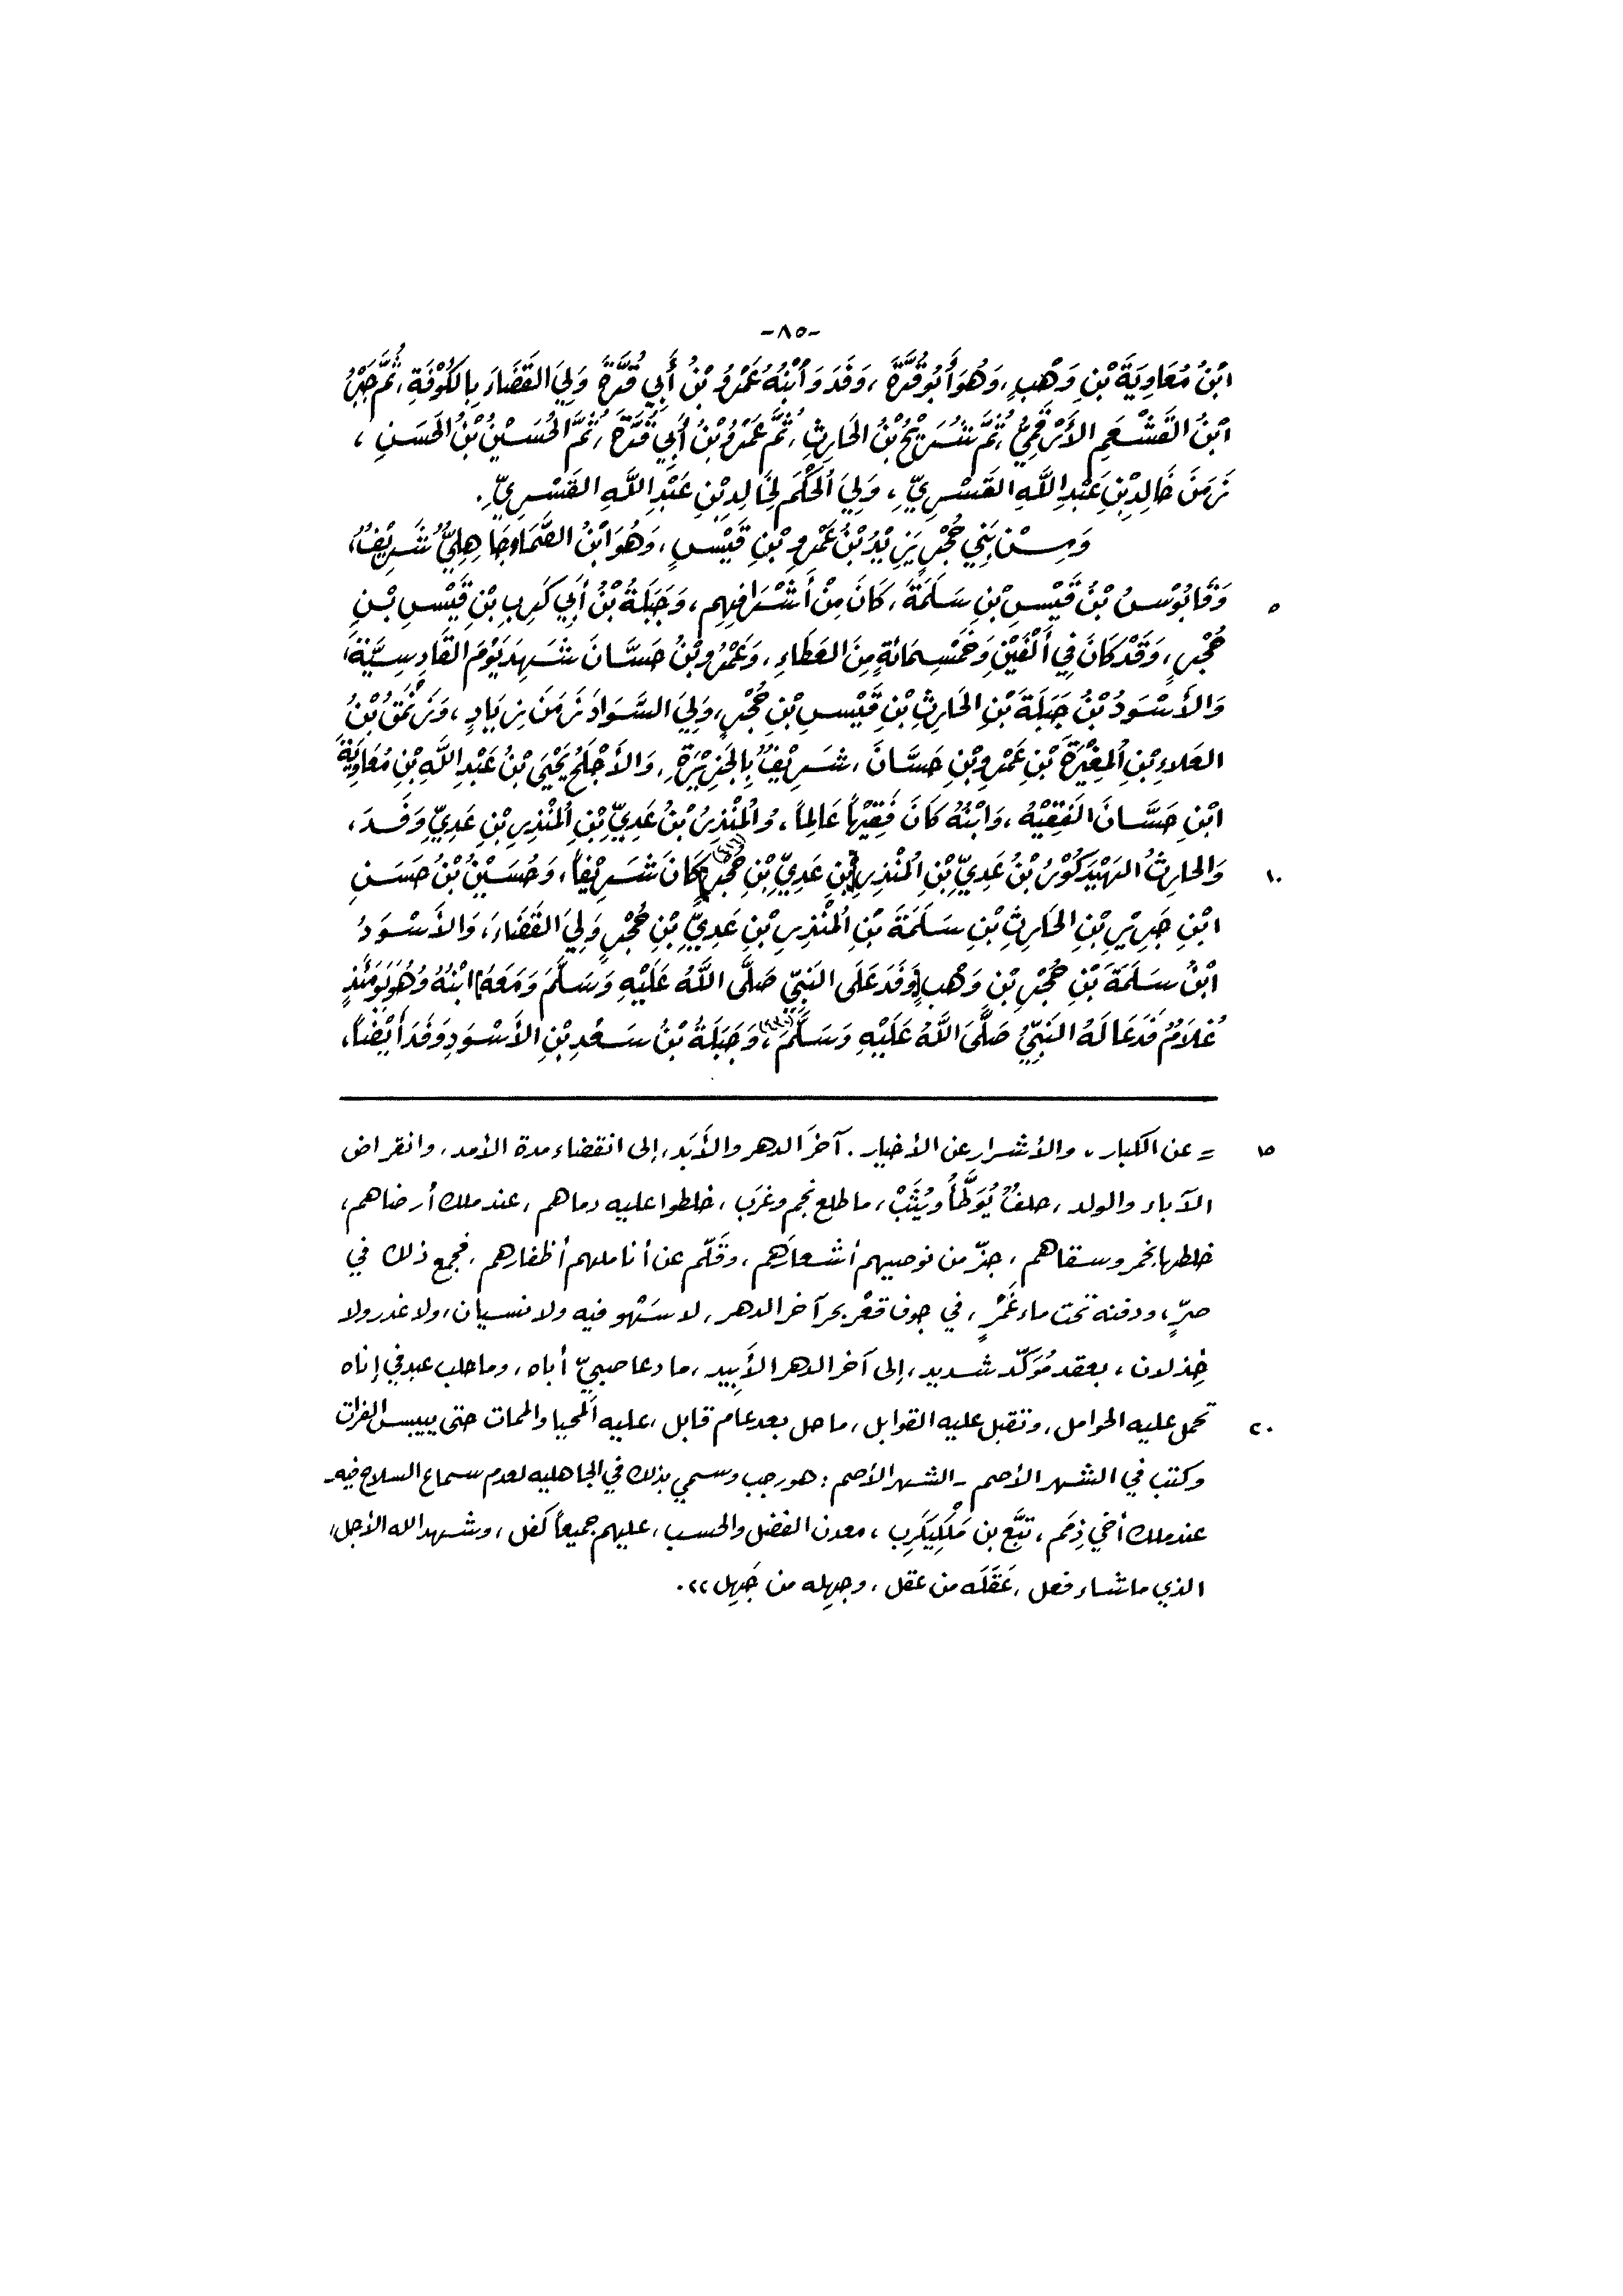 -٨٥-
ابْنُ مُعَاوِيَةَ بْنِ وَهْبٍ، وَهُوَ أَبُو قُرَّةَ، وَفَدَ وَابْنُهُ عَمْرُو بْنُ أَبِي قُرَّةَ وَلِيَ القَضَاءَ بِالكُوْفَةِ، ثُمَّ جَبْرُ
ابْنُ القَشْعَمِ الأَرْقَمِيُّ، ثُمَّ شُرَيْحُ بْنُ الحَارِثِ، ثُمَّ عَمْرُو بْنُ أَبِي قُرَّةَ، ثُمَّ الحُسَيْنُ بْنُ الحَسَنِ،
زَمَنَ خَالِدِ بْنِ عَبْدِ اللَّهِ القَسْرِيِّ، وَلِيَ الحُكْمَ لِخَالِدِ بْنِ عَبْدِ اللَّهِ القَسْرِيِّ.
وَمِنْ بَنِي حُجْرٍ يَزِيْدُ بْنُ عَمْرِو بْنِ قَيْسٍ، وَهُوَ ابْنُ الصَّمَّاءِ جَاهِلِيٌّ شَرِيْفٌ،
وَقَابُوْسُ بْنُ قَيْسِ بْنِ سَلَمَةَ، كَانَ مِنْ أَشْرَافِهِم، وَجَبَلَةُ بْنُ أَبِي كَرِبِ بْنِ قَيْسِ بْنِ
٥
حُجْرٍ، وَقَدْ كَانَ فِي أَلْفَيْنِ وَخَمْسِمَائَةٍ مِنَ العَطَاءِ، وَعَمْرُو بْنُ حَسَّانَ شَهِدَ يَوْمَ القَادِسِيَّةِ،
وَالأَسْوَدُ بْنُ جَبَلَةَ بْنِ الحَارِثِ بْنِ قَيْسِ بْنِ حُجْرٍ، وَلِيَ السَّوَادَ زَمَنَ زِيَادٍ، وَزَنْمَقُ بْنُ
العَلَاءِ بْنِ المُغِيْرَةِ بْنِ عَمْرِو بْنِ حَسَّانَ، شَرِيْفٌ بِالجَزِيْرَةِ، وَالأَجْلَحُ يَحْيَى بْنُ عَبْدِ اللَّهِ بْنِ مُعَاوِيَةَ
ابْنِ حَسَّانَ الفَقِيْهُ، وَابْنُهُ كَانَ فَقِيْهاً عَالِماً، وَالمُنْذِرُ بْنُ عَدِيِّ بْنِ المُنْذِرِ بْنِ عَدِيِّ وَفَدَ،
وَالحَارِثُ بْنُ عَدِيِّ بْنِ المُنْذِرِ [بْنِ عَدِيِّ بْنِ حُجْرٍ] كَانَ شَرِيْفاً، وَحُسَيْنُ بْنُ حَسَنِ
١٠
ابْنِ جَرِيْرِ بْنِ الحَارِثِ بْنِ سَلَمَةَ بْنِ المُنْذِرِ بْنِ عَدِيِّ بْنِ حُجْرٍ وَلِيَ القَضَاءَ، وَالأَسْوَدُ
ابْنُ سَلَمَةَ بْنِ حُجْرِ بْنِ وَهْبٍ [وَفَدَ عَلَى النَّبِيِّ صَلَّى اللَّهُ عَلَيْهِ وَسَلَّمَ وَمَعَهُ] ابْنُهُ وَهُوَ يَوْمَئِذٍ
غُلَامٌ فَدَعَا لَهُ النَّبِيُّ صَلَّى اللَّهُ عَلَيْهِ وَسَلَّمَ، وَجَبَلَةُ بْنُ سَعْدِ بْنِ الأَسْوَدِ وَفَدَ أَيْضاً،
= عن الكبار، والأشرار عن الأخيار. آخرَ الدهر والأَبَد، إلى انقضاء مدة الأمد، وانقراض
١٥
الآباء والولد، حلفٌ يُوَطَّأُ ويُثَبْ، ما طلع نجم وغرَب، خلطوا عليه دماهم، عند ملك أرضاهم،
خلطها بخمر وسقاهم، جزّ من نوصيهم أشعارَهم، وقَلّم عن أناملهم أظفارهم، فجمع ذلك في
صرٍّ، ودفنه تحت ماء غَمْرٍ، في جوف قعْر بحر آخر الدهر، لا سَهْو فيه ولا نسيان، ولا غدر ولا
خِذلان، بعقد مُوَكّد شديد، إلى آخر الدهر الأَبِيد، ما دعا صبيّ أباه، وما حلب عبد في إناه
تحمل عليه الحوامل، وتقبل عليه القوابل، ما حل بعد عام قابل، عليه المحيا والممات حتى ييبس الفرات
٢٠
وكتب في الشهر الأصم ـ الشهر الأصم: هو رجب وسمي بذلك في الجاهليه لعدم سماع السلاح فيه ـ
عند ملك أخي ذِمَم، تبَّع بن مَلْكِيكَرِب، معدن الفضل والحسب، عليهم جميعاً كفل، وشهد الله الأجل،
الذي ما شاء فعل، عَقَلَه من عقل، وجهِله من جَهِل».